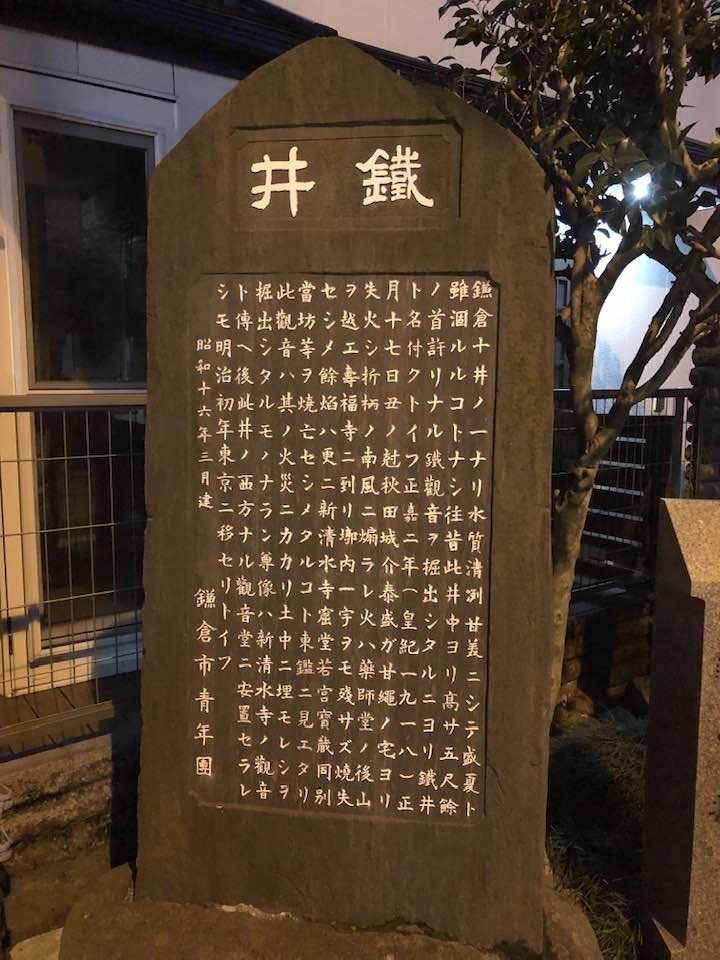 鐵井
鎌倉十井ノ一ナリ水質清冽甘美ニシテ盛夏ト
雖涸ルルコトナシ往昔此井中ヨリ高サ五尺餘
ノ首許リナル鐵觀音ヲ掘出シタルニヨリ鐵井
ト名付クトイフ正嘉二年(皇紀一九一八)正
月十七日丑ノ尅秋田城介泰盛ガ甘繩ノ宅ヨリ
失火シ折柄ノ南風ニ煽ラレ火ハ藥師堂ノ後山
ヲ越エ壽福寺ニ到リ墎内一宇ヲモ殘サズ燒失
セシメ餘焰ハ更ニ新清水寺窟堂若宮寶藏同別
當坊等ヲ燒亡セシメタルコト東鑑ニ見エタリ
此觀音ハ其ノ火災ニカカリ土中ニ埋モレシヲ
掘出シタルモノナラン尊像ハ新清水寺ノ觀音
ト傳ヘ後此井ノ西方ナル觀音堂ニ安置セラレ
シモ明治初年東京ニ移セリトイフ
昭和十六年三月建 鎌倉市青年團